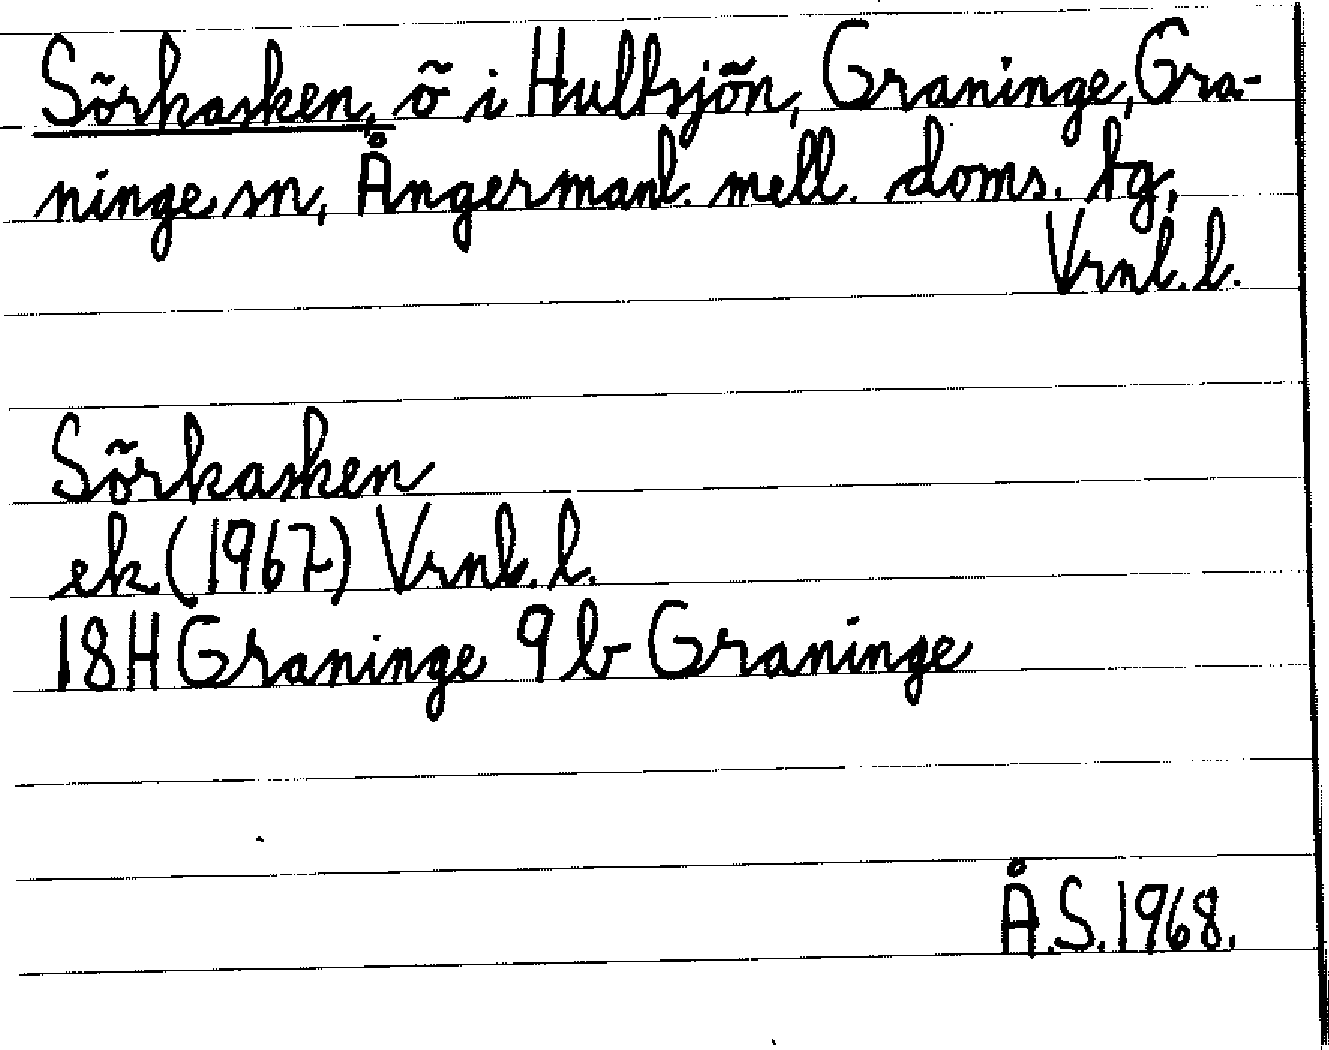 Sörkasken, ö i Hultsjön, Graninge, Gra-
ninge sn, Ångermanl. mell. doms. tg,
Vrnl. l.
Sörkasken
ek (1967) Vrnl. l.
18H Graninge 9b Graninge
Å.S. 1968.